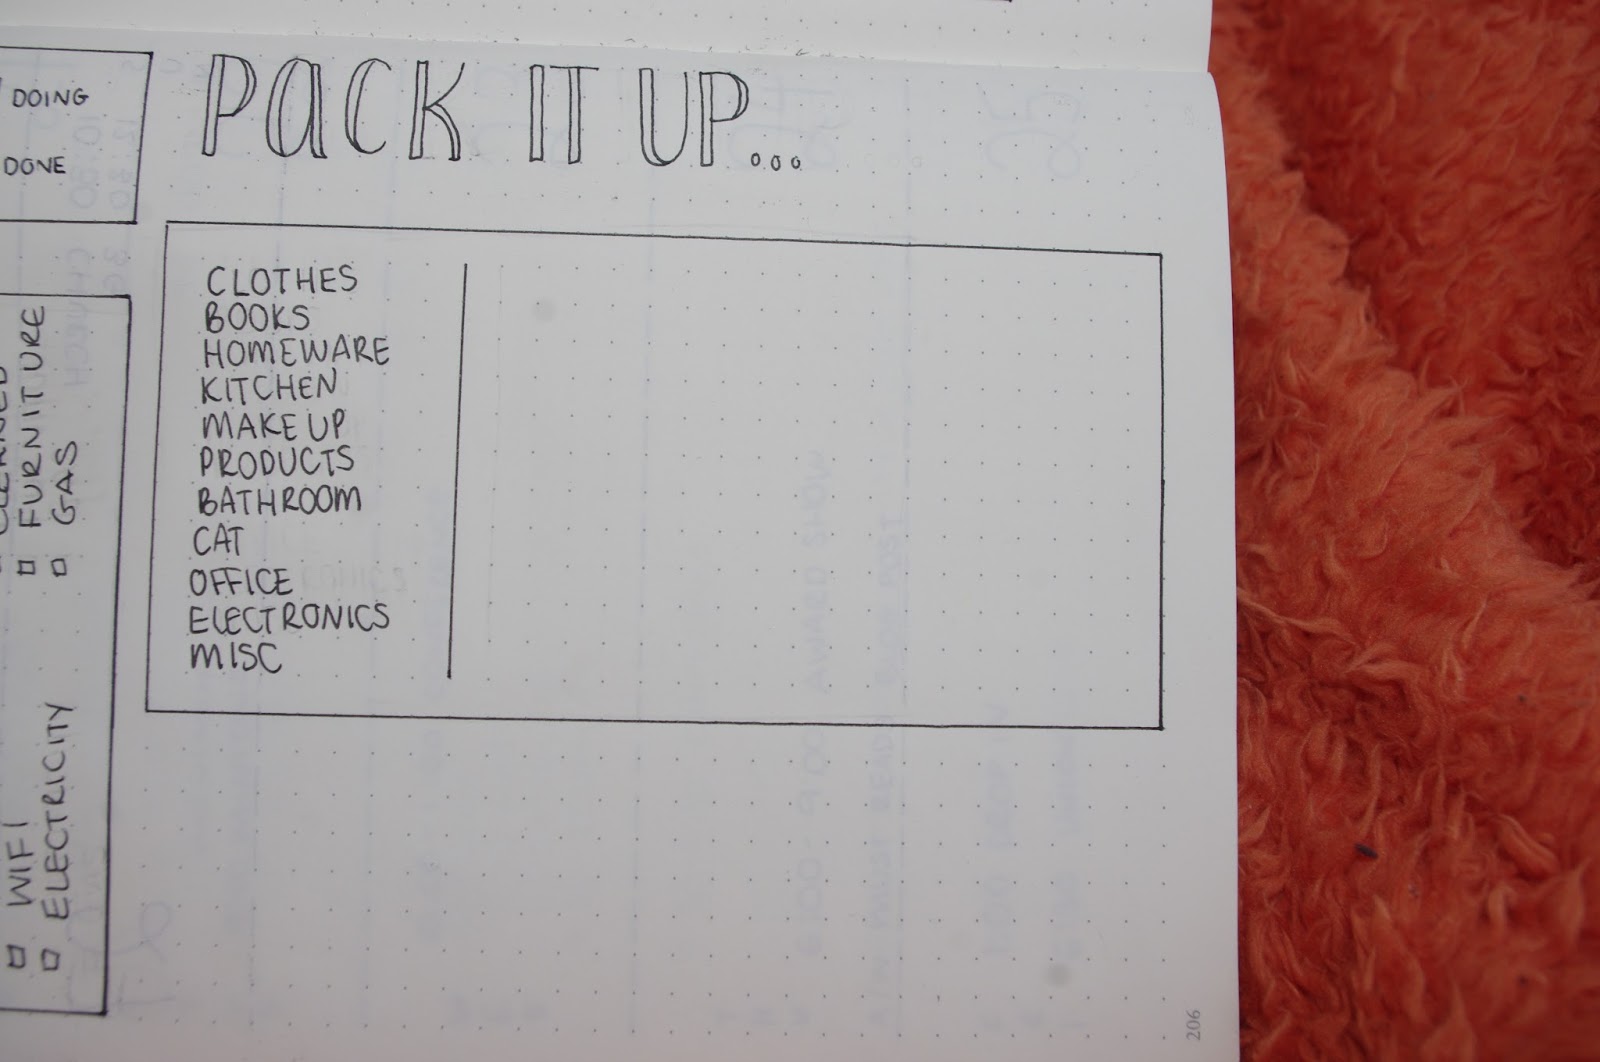 DOING
DONE
PACK IT UP...
CLOTHES
BOOKS
HOMEWARE
KITCHEN
MAKE UP
PRODUCTS
BATHROOM
CAT
OFFICE
ELECTRONICS
MISC
FURNITURE
GAS
WIFI
ELECTRICITY
206